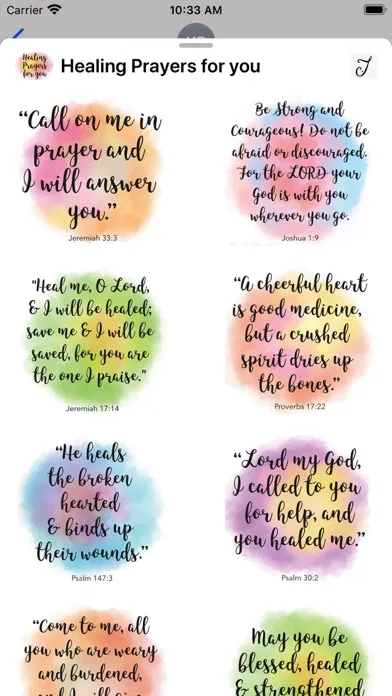 Carrier
10:33 AM
Healing
Prayers
for you
Healing Prayers for you
“Call on me in
prayer and
I will answer
you.”
Jeremiah 33:3
Be Strong and
Courageous! Do not be
afraid or discouraged.
For the LORD your
God is with you
wherever you go.
Joshua 1:9
"Heal me, O Lord,
& I will be healed;
save me & I will be
saved, for you are
the one I praise."
Jeremiah 17:14
“A cheerful heart
is good medicine,
but a crushed
spirit dries up
the bones.”
Proverbs 17:22
“He heals
the broken
hearted
& binds up
their wounds.”
Psalm 147:3
“Lord my God,
I called to you
for help, and
you healed me.”
Psalm 30:2
“Come to me, all
you who are weary
and burdened,
and I will give
May you be
blessed, healed
& strengthened